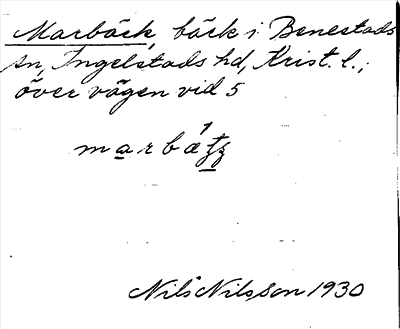 Marbäck, bäck i Benestads
sn, Ingelstads hd, Krist. l.;
över vägen vid 5
marbæ
Nils Nilsson 1930